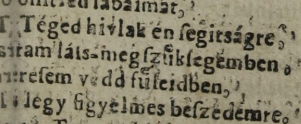 lábaimat,
Téged hivlak én segitságre,
láts-meg szükségemben,
védd füleidben,
légy figyelmes beszédemre.